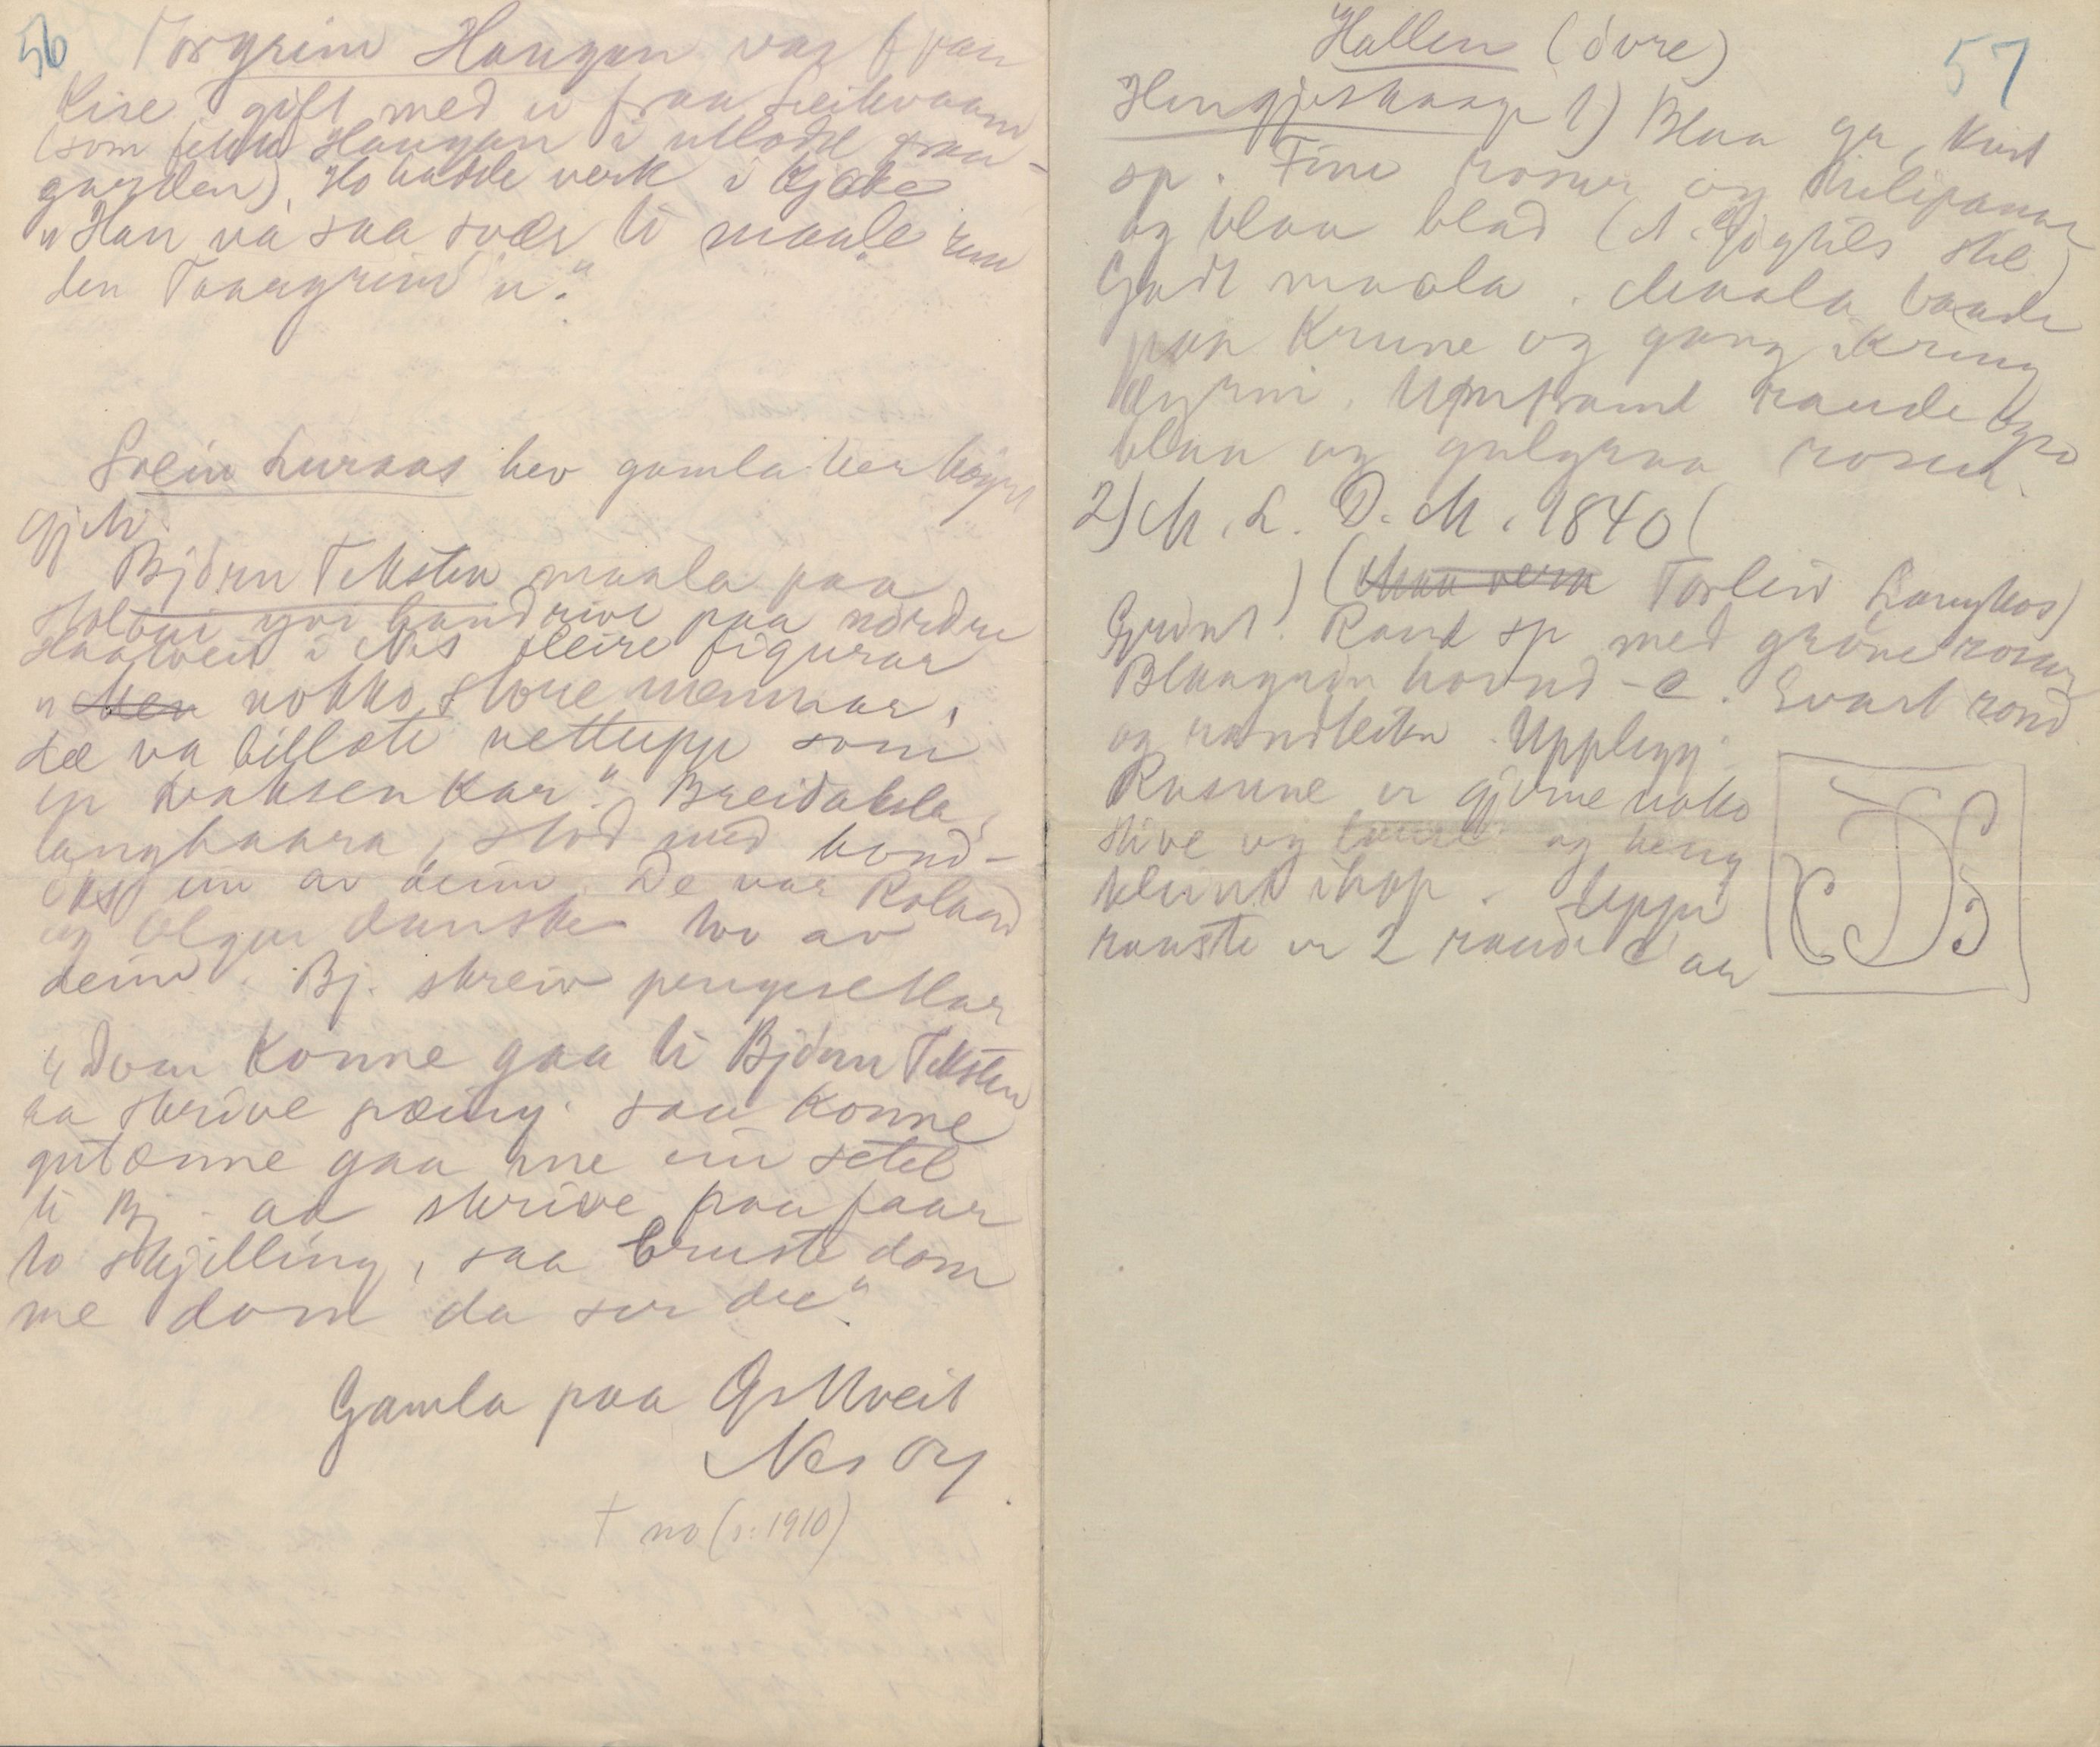 56
Torgrim Haugan var fraa
Kise gift med ei fraa Leikvaam
(som fekk Haugan i utlodd fraa
garden). Ho hadde verk i kjake
"Han va saa svær ti maale ruu
den Taargrim'n."
Svein Luraas hev gamla her høyrt
gjete.
Bjørn Teksten maala paa
stoloni yvi handrive paa nørdre
Haatveit i Nes fleire figurar
" nokko store mennar,
dæ va billæte rettupp som
ein vaksen kar". Breidaksla,
langhaara, stod med hand-
øks ein av deim. De var Roland
og Olger danske two av
deim. Bj. skreiv pengesetlar
"Dom konne gaa ti Bjørn Teksten
aa skrive pæing. saa konne
gutænne gaa me ein setel
ti Bj. aa skrive paa faar
to skjilling, saa bruste dom
me dom da ser du"
Gamla paa Grktveit
Nes Øy.
† no (ɔ: 1910)
57
Hallen (övre)
Hengjeskaap 1) Blaa gr, kvit
sp. Fine rosur og tulipanar
og blaa blad (A. Gigstils stil)
Godt maala. Maala baade
paa krune og gang ikring
dyrni. Uppframt raude ogso
blaa og gulgraa rosur.
2) M. L. D. M. 1840 (
) ( Torleiv Langkos)
Grønt. Raud sp med grøne rosur
Blaagrøn hovud-C. Svart rond
og randleiter. Upplegg.
Rosune er gjerne noko
stive og og heng
kleint ihop. Uppi
raaste er 2 raude C'ar